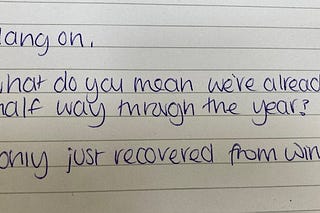 lang on.
what do you mean we've alread
half way through the year?
only just recovered from win